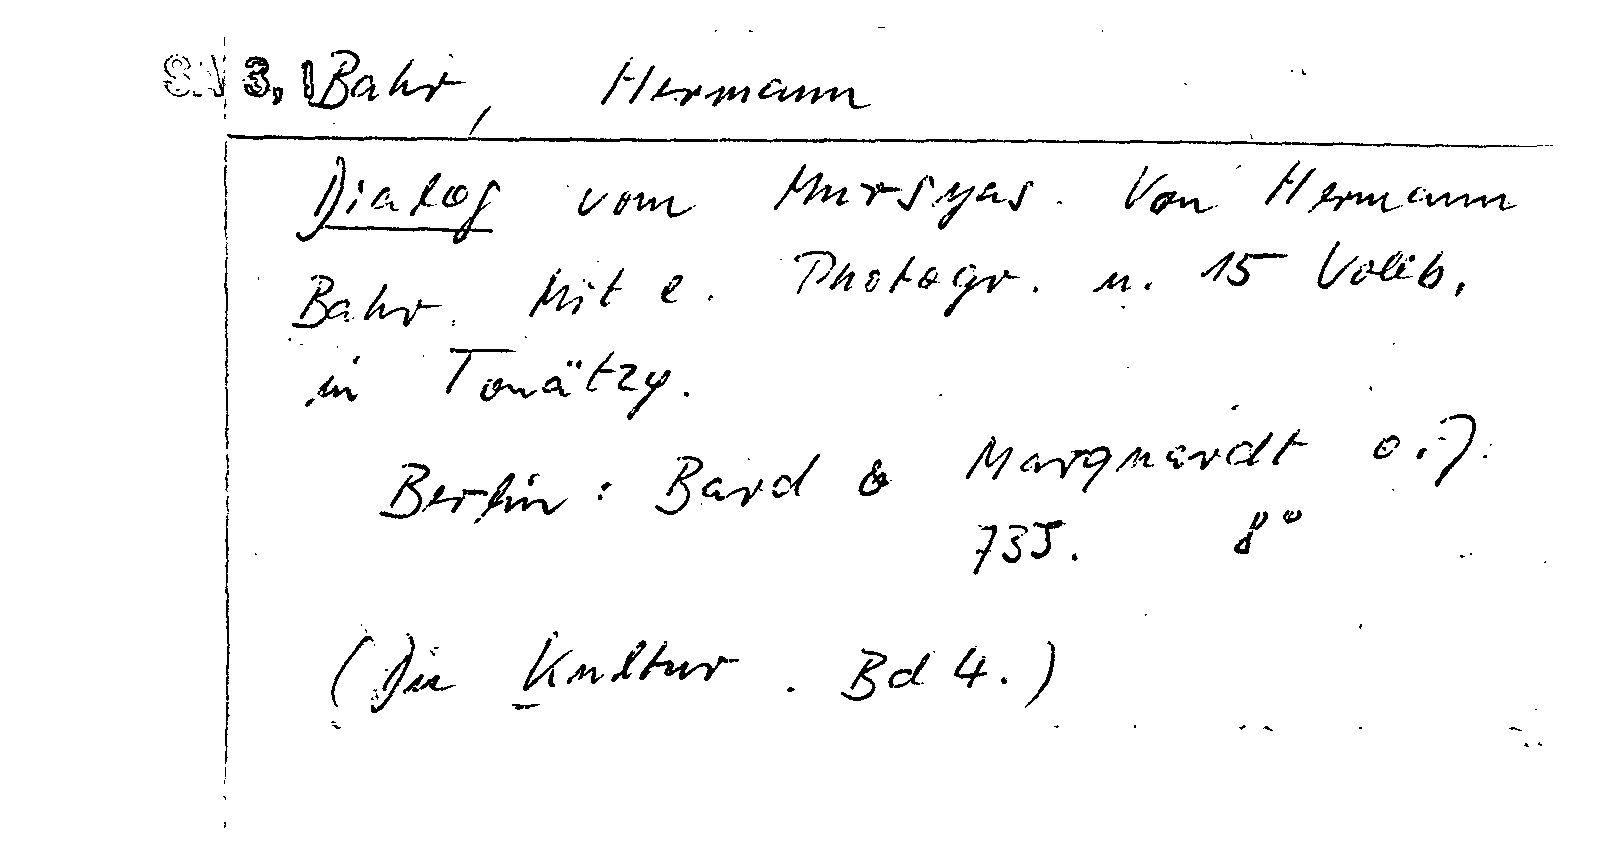 SN 3,1 Bahr, Hermann
Dialog vom Marsyas. Von Hermann
Bahr. Mit e. Photogr. u. 15 Vollb.
in Tonätzg.
Berlin: Bard & Marquardt o.J.
73 S. 8°
(Die Kultur. Bd 4.)